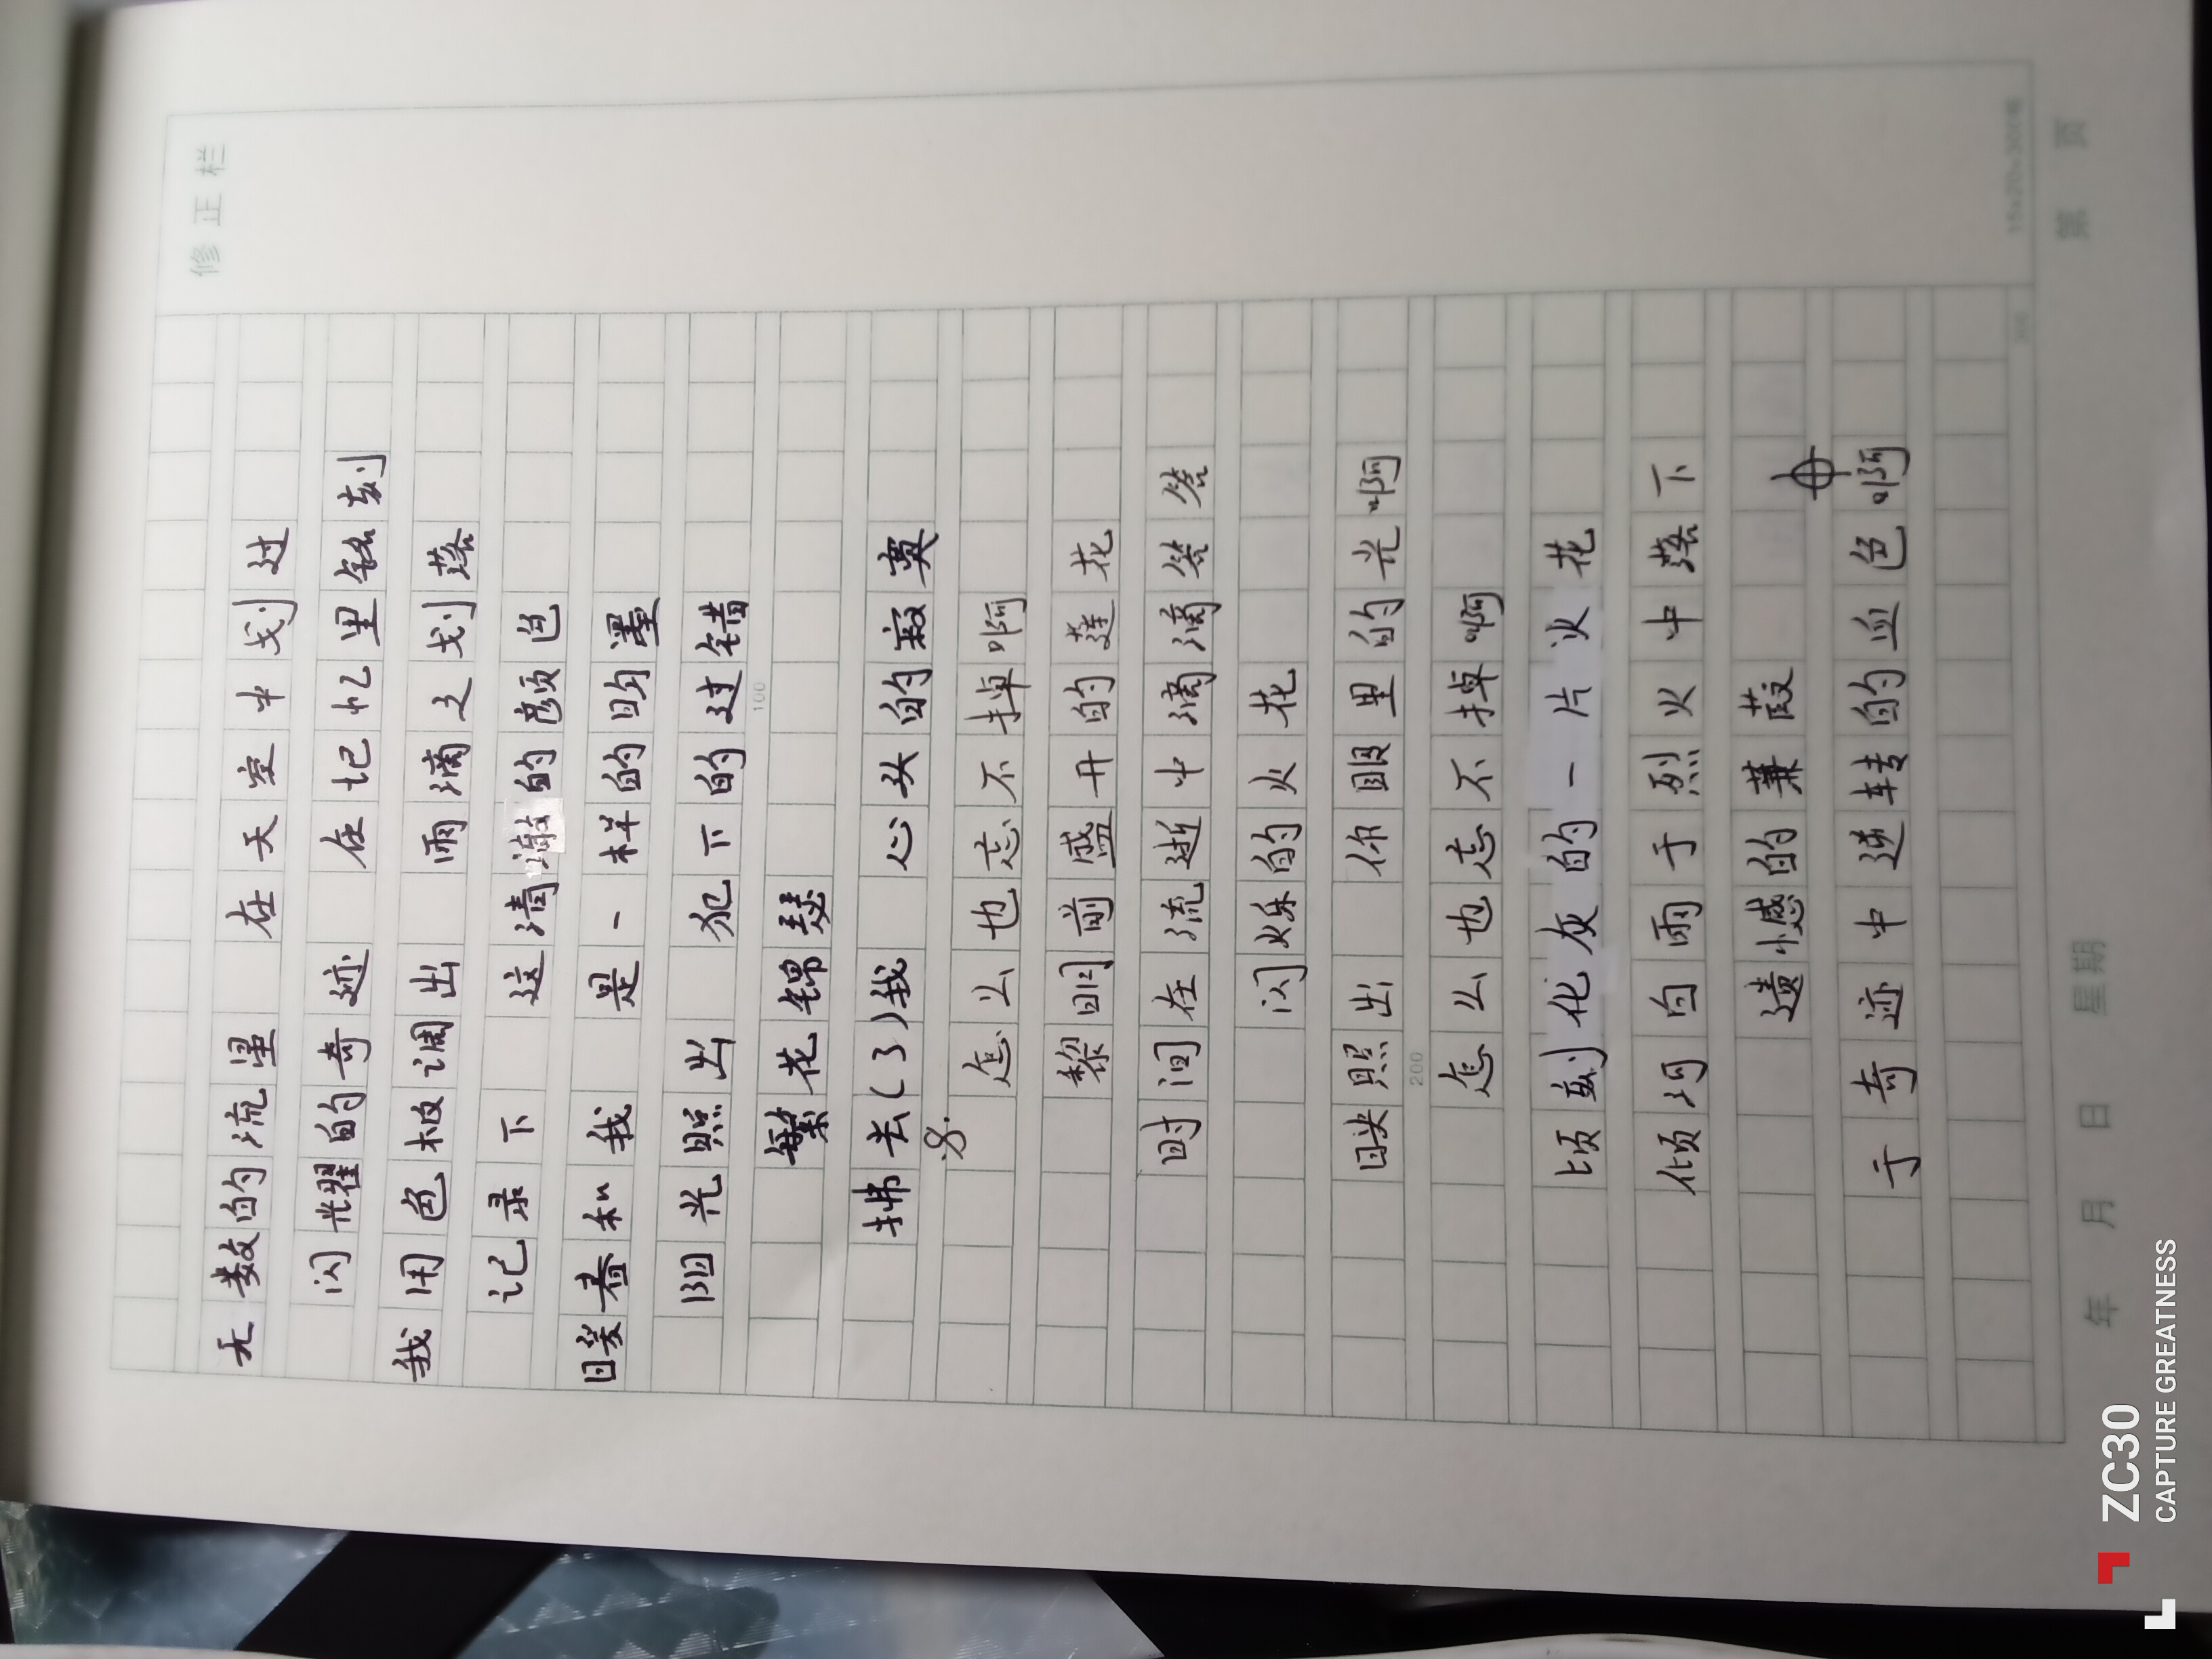 修正栏
无数的流星 在天空中划过
闪耀的奇迹 在记忆里铭刻
我用色板调出 雨滴之划落
记录下 这清澈的颜色
回笑春和我 是一样的昀墨
阳光照出 犯下的过错
100
繁花锦瑟
拂去(了)我 心头的寂寞
怎么也忘不掉啊
黎明前盛开的莲花
时间在流逝中滴滴答答
闪烁的火花
回头照出 你眼里的光啊
200
怎么也忘不掉啊
顷刻化灰的一片火花
倾巧白雨于烈火中落下
遗憾的蒹葭
于奇迹中逆转的血色啊
300
15×20=300格
年 月 日 星期 第 页
ZC30
CAPTURE GREATNESS